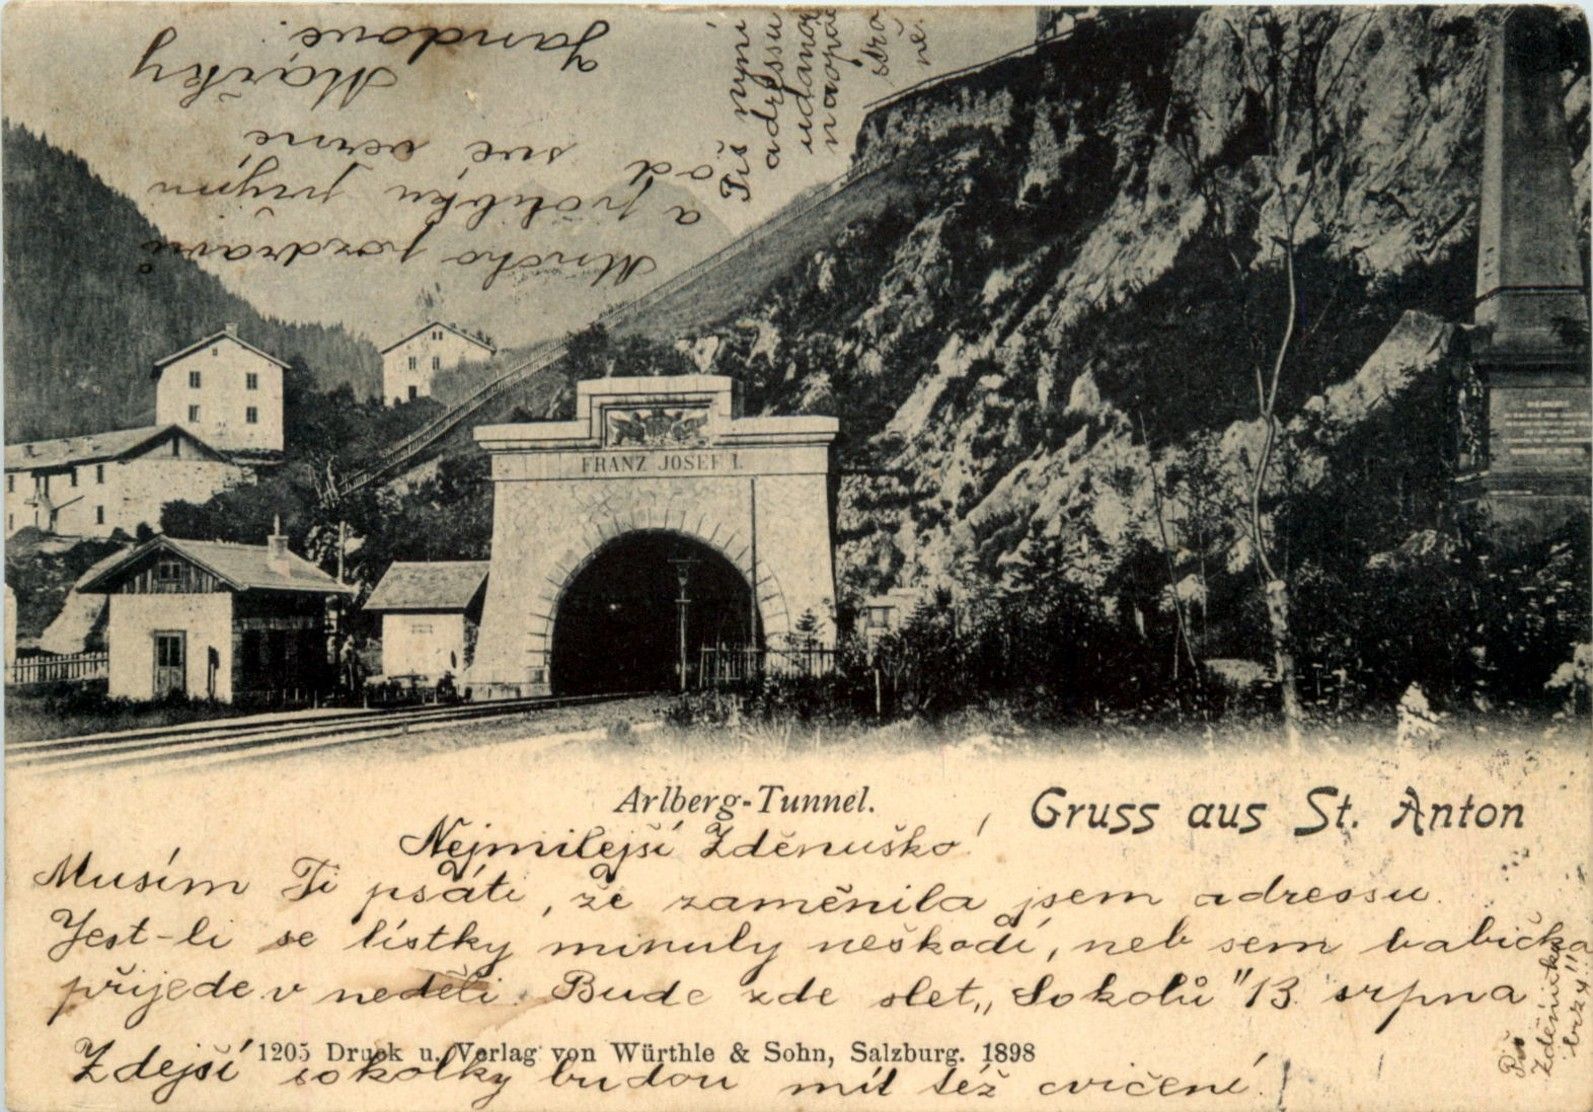 FRANZ JOSEF I.
Arlberg-Tunnel.
Gruss aus St. Anton
Nejmilejší Zděnuško!
Musím Ti psáti, že zaměnila jsem adressu.
Jest-li se lístky minuly neškodí, neb sem babička
přijede v neděli. Bude zde slet „Sokolů" 13. srpna
Zdejší sokolky budou mít též cvičení.
1205 Druck u. Verlag von Würthle & Sohn, Salzburg. 1898
Piš
Zděnuško
brzy!!
Mnoho pozdravů
a polibků přijmi
od své věrné
Mářky
Jandové.
Piš nyní
adressu
udanou
naopač
stra
ně.